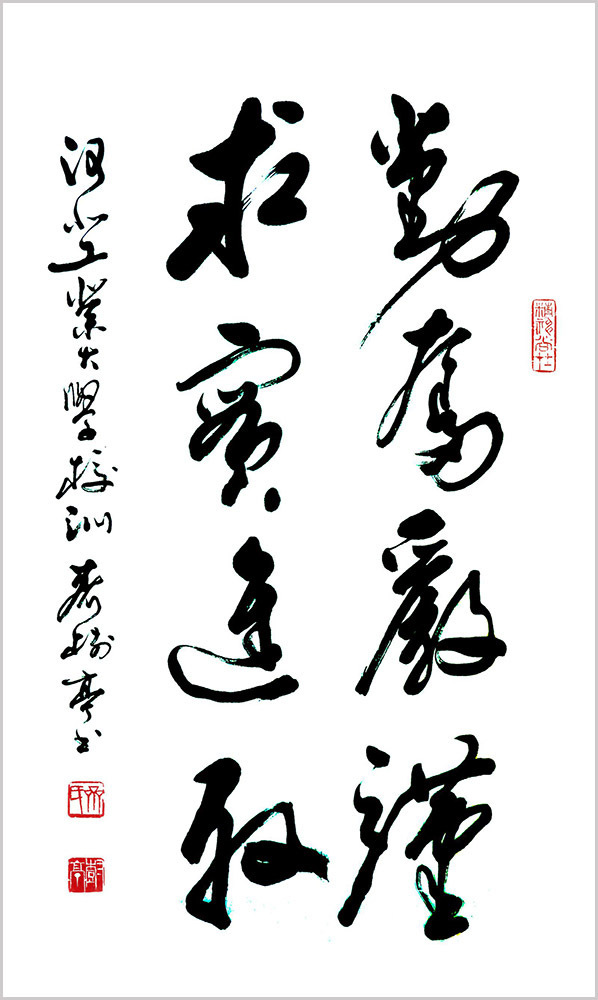 勤奮嚴謹
求實進取
河北工業大學校訓 樹亭书